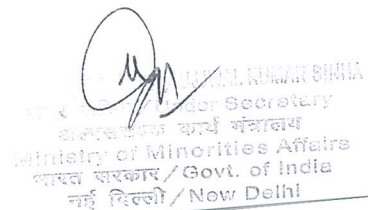 KUMAR SINHA
/Under Secretary
कार्य मंत्रालय
Ministry of Minorities Affairs
भारत सरकार/Govt. of India
नई दिल्ली/New Delhi